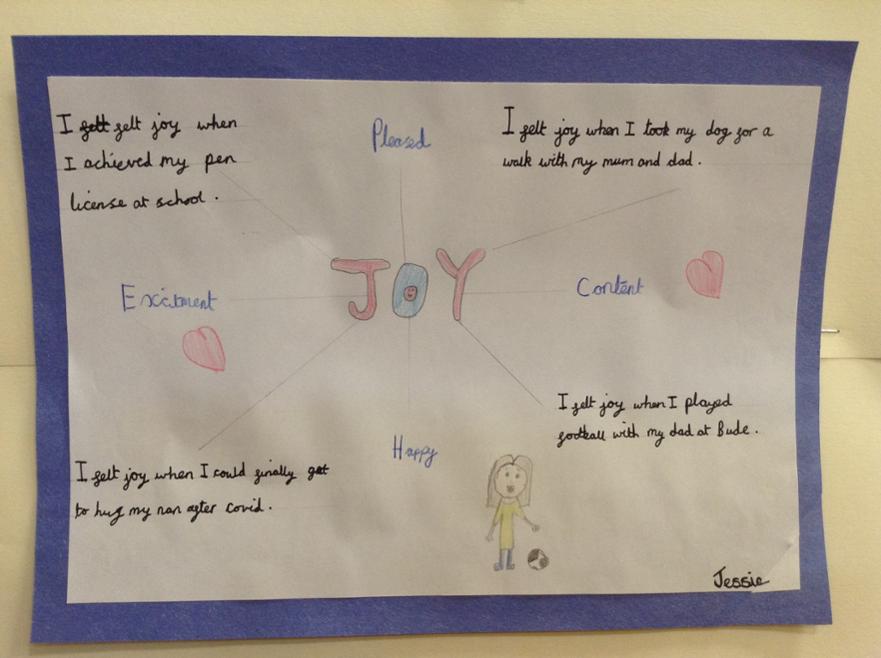 I felt joy when
I achieved my pen
license at school.
Pleased
I felt joy when I took my dog for a
walk with my mum and dad.
JOY
Excitment
Content
I felt joy when I played
football with my dad at Bude.
Happy
I felt joy when I could finally get
to hug my nan after covid.
Jessie